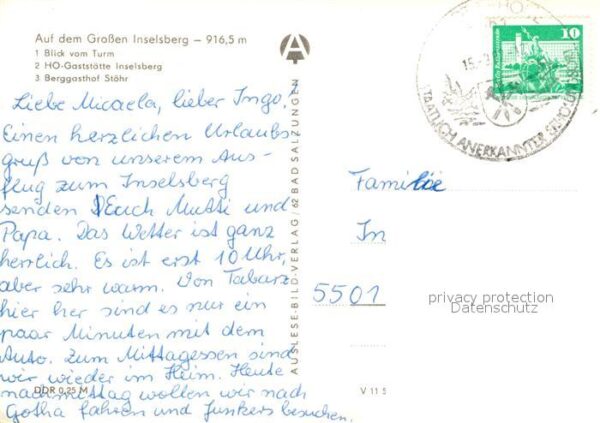 Auf dem Großen Inselsberg – 916,5 m
1 Blick vom Turm
2 HO-Gaststätte Inselsberg
3 Berggasthof Stöhr
Liebe Micaela, lieber Ingo!
Einen herzlichen Urlaubs-
gruß von unserem Aus-
flug zum Inselsberg
senden Euch Mutti und
Papa. Das Wetter ist ganz
herrlich. Es ist erst 10 Uhr,
aber sehr warm. Von Tabarz
hier her sind es nur ein
paar Minuten mit dem
Auto. Zum Mittagessen sind
wir wieder im Heim. Heute
nachmittag wollen wir nach
Gotha fahren und Junkers besuchen.
DDR 0,25 M
AUSLESE-BILD-VERLAG / 62 BAD SALZUNGEN
A
10
STAATLICH ANERKANNTER
Familie
In
5501
privacy protection
Datenschutz
V 11 5